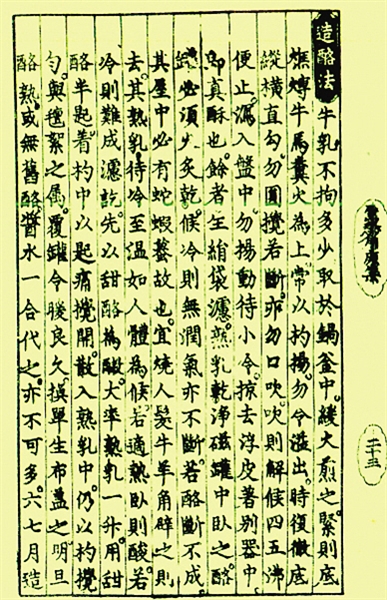 造酪法 牛乳不拘多少取於鍋釜中緩火煎之緊則底
燋煿牛馬糞火為上常以杓揚勿令溢出時復徹底
縱橫直勾勿圓攪若斷亦勿口吹吹則解候四五沸
便止瀉入盤中勿揚動待小冷掠去浮皮著別器中
即真酥也餘者生絹袋濾熟乳乾淨磁罐中臥之酪
罐必須火炙乾候冷則無潤氣亦不斷若酪斷不成
其屋中必有蛇蝦蟇故也宜燒人髮牛羊角辟之則
去其熟乳待冷至溫如人體為候若適熱臥則酸若
冷則難成濾訖先以甜酪為酸大率熟乳一升用甜
酪半匙着杓中以匙痛攪開散入熟乳中仍以杓攪
勻與氊絮之属覆罐令暖良久換單生布盖之明旦
酪熟或無舊酪醬水一合代之亦不可多六七月造